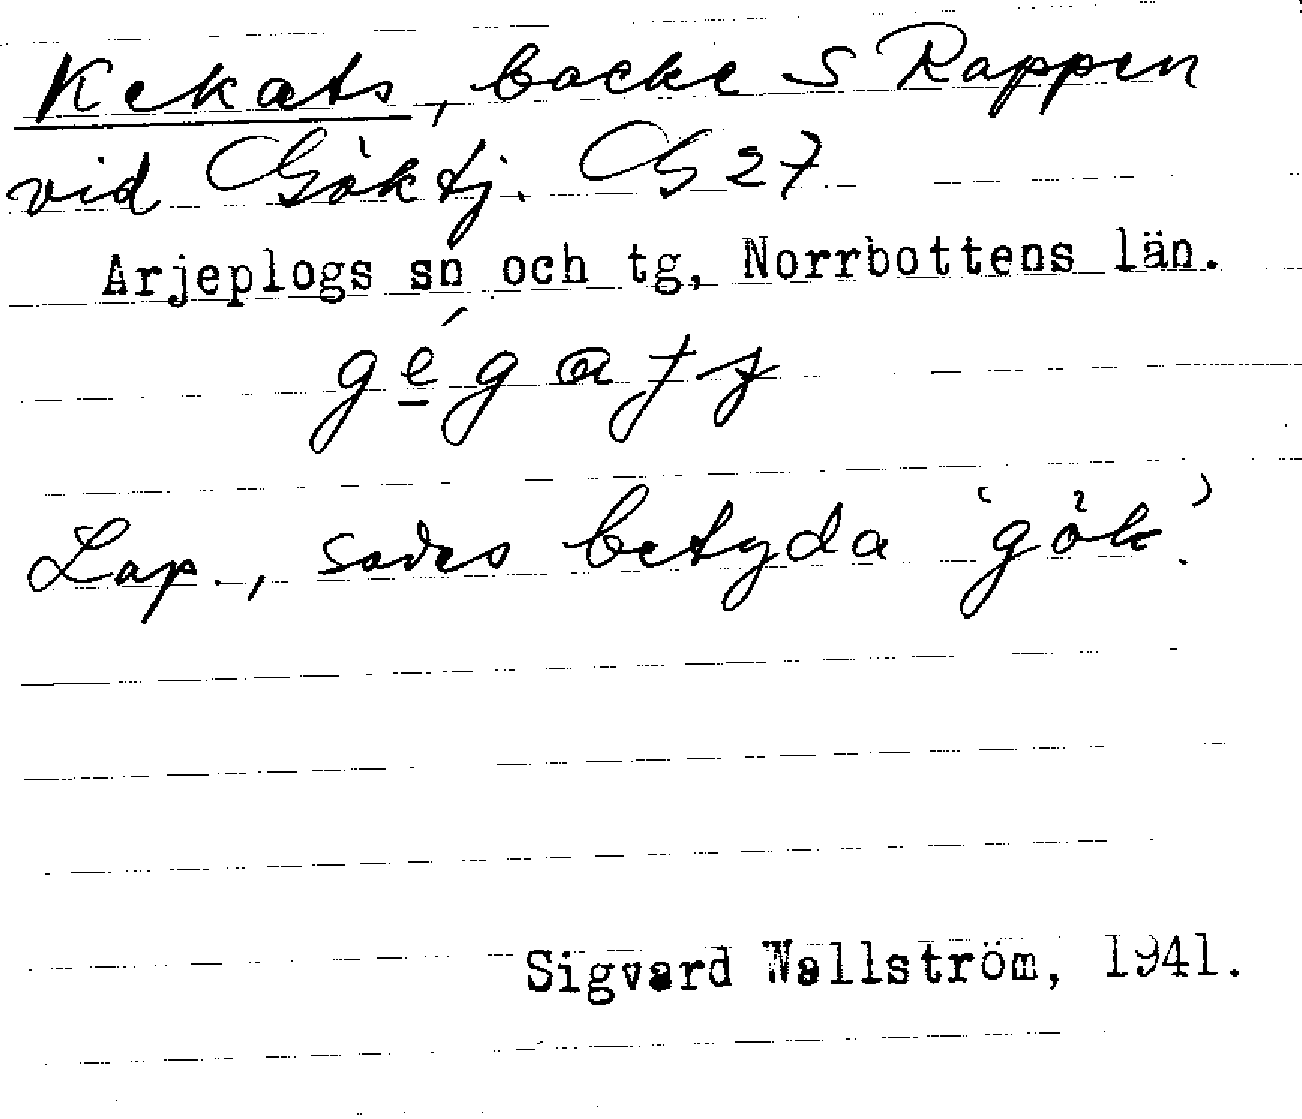 Kekats, backe S Rappen
vid Göktj. G 27
Arjeplogs sn och tg, Norrbottens län.
Lap., sades betyda 'gök'.
Sigvard Wallström, 1941.